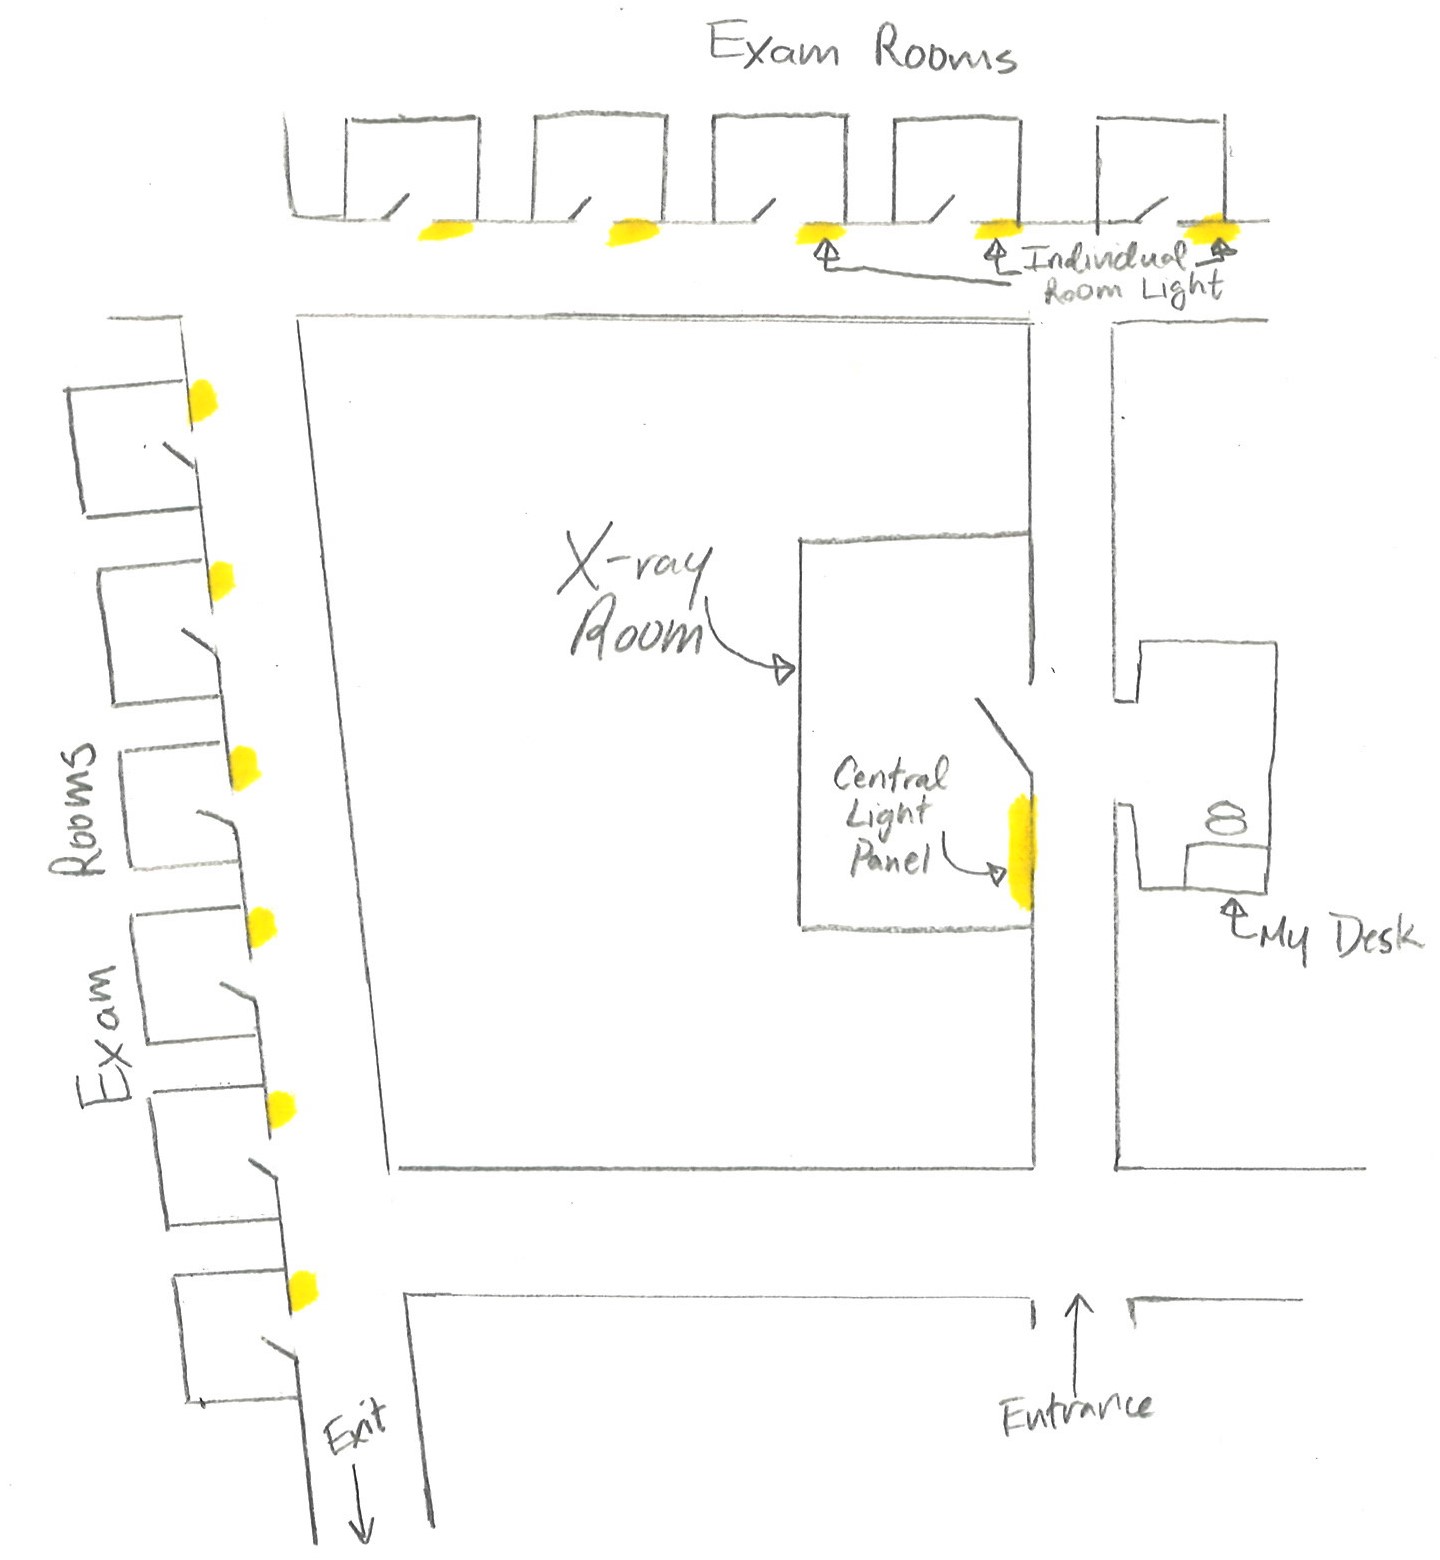 Exam Rooms
Individual
Room Light
X-ray
Room
Central
Light
Panel
My Desk
Exam Rooms
Entrance
Exit